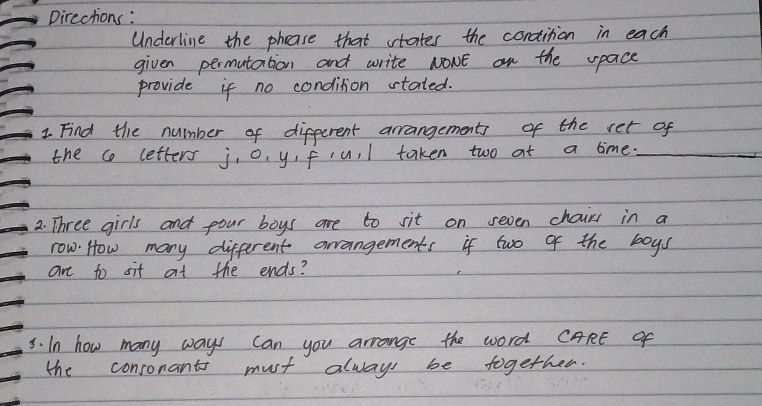 Directions:
Underline the phrase that states the condition in each
given permutation and write NONE on the space
provide if no condition stated.
1. Find the number of different arrangements of the set of
the 6 letters j, o, y, f, u, l taken two at a time.
2. Three girls and four boys are to sit on seven chairs in a
row. How many different arrangements if two of the boys
are to sit at the ends?
3. In how many ways can you arrange the word CARE of
the consonants must always be together.